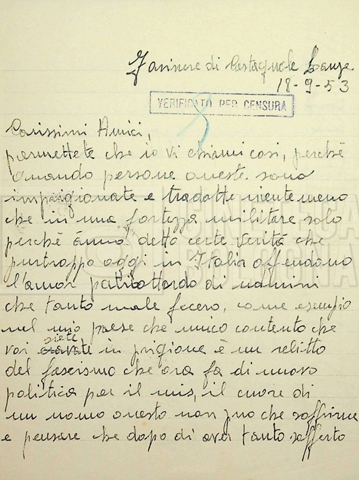 Farinere di Castagnole Lanze
18-9-53
VERIFICATO PER CENSURA
Carissimi Amici,
permettete che io vi chiami così, perché
quando persone oneste sono
imprigionate e tradotte nientemeno
che in una fortezza militare solo
perché ànno detto certe verità che
purtroppo oggi in Italia offendono
l'amor di uomini
che tanto male fecero, come esempio
nel mio paese che unico contento che
voi siete in prigione è un relitto
del fascismo che ora fa di nuovo
politica per il mis, il cuore di
un uomo onesto non può che soffrirne
e pensare che dopo di aver tanto sofferto